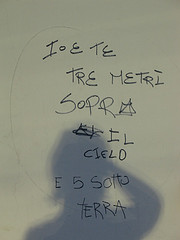 IO E TE
TRE METRI
SOPRA
IL
CIELO
E 5 SOTTO
TERRA